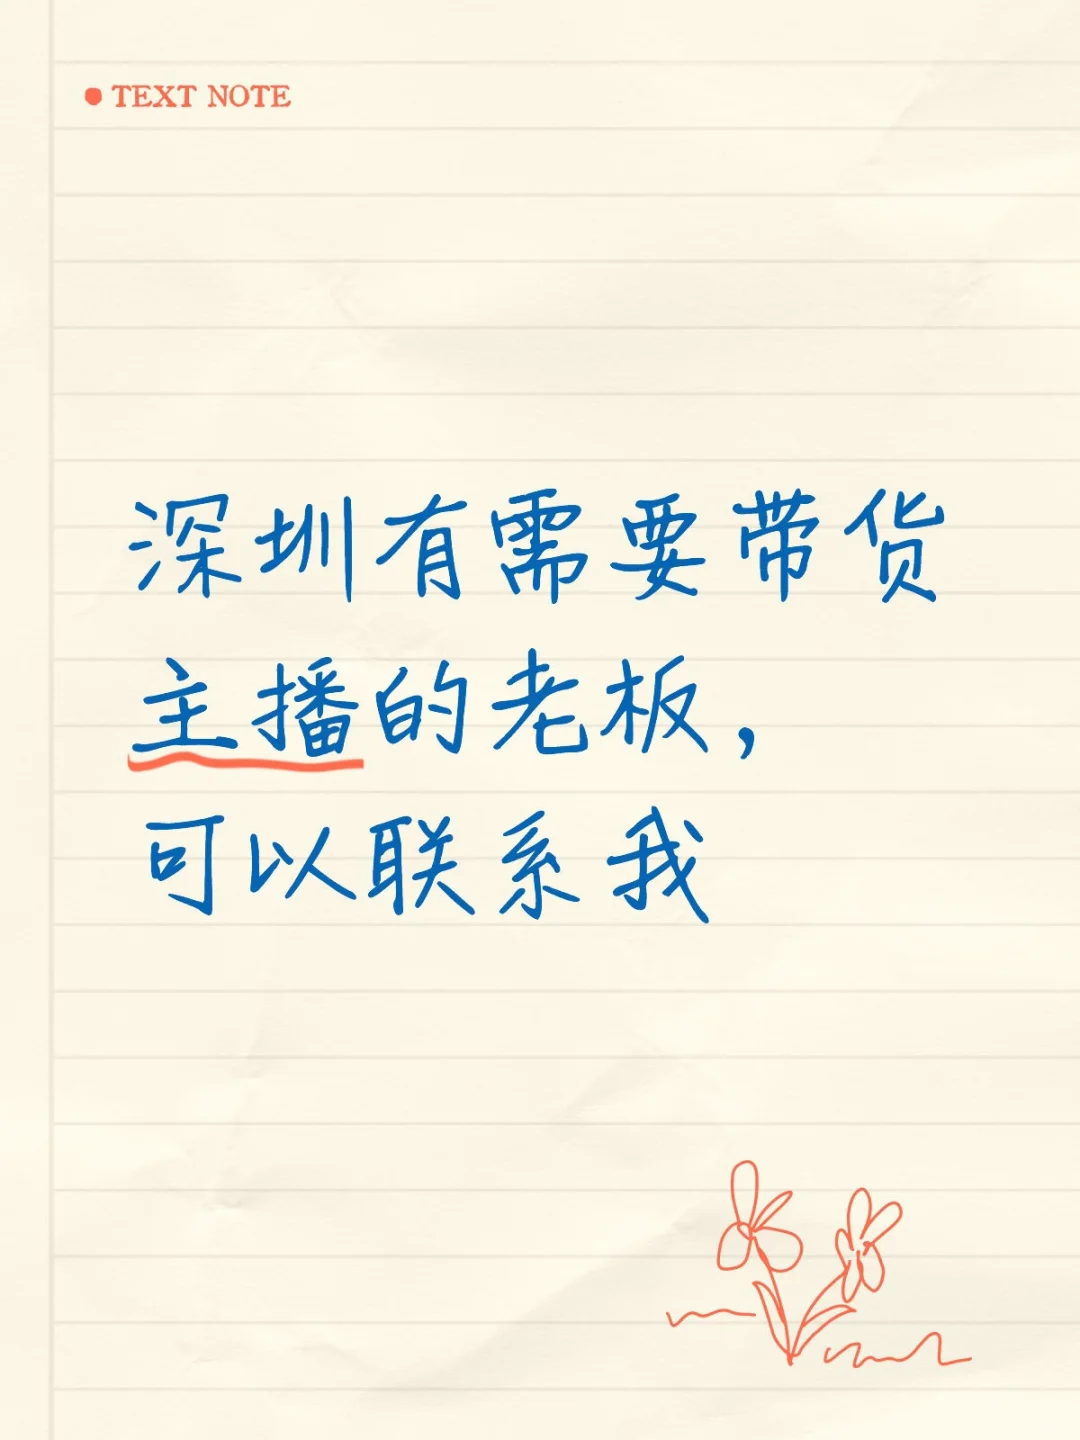 TEXT NOTE
深圳有需要带货
主播的老板，
可以联系我